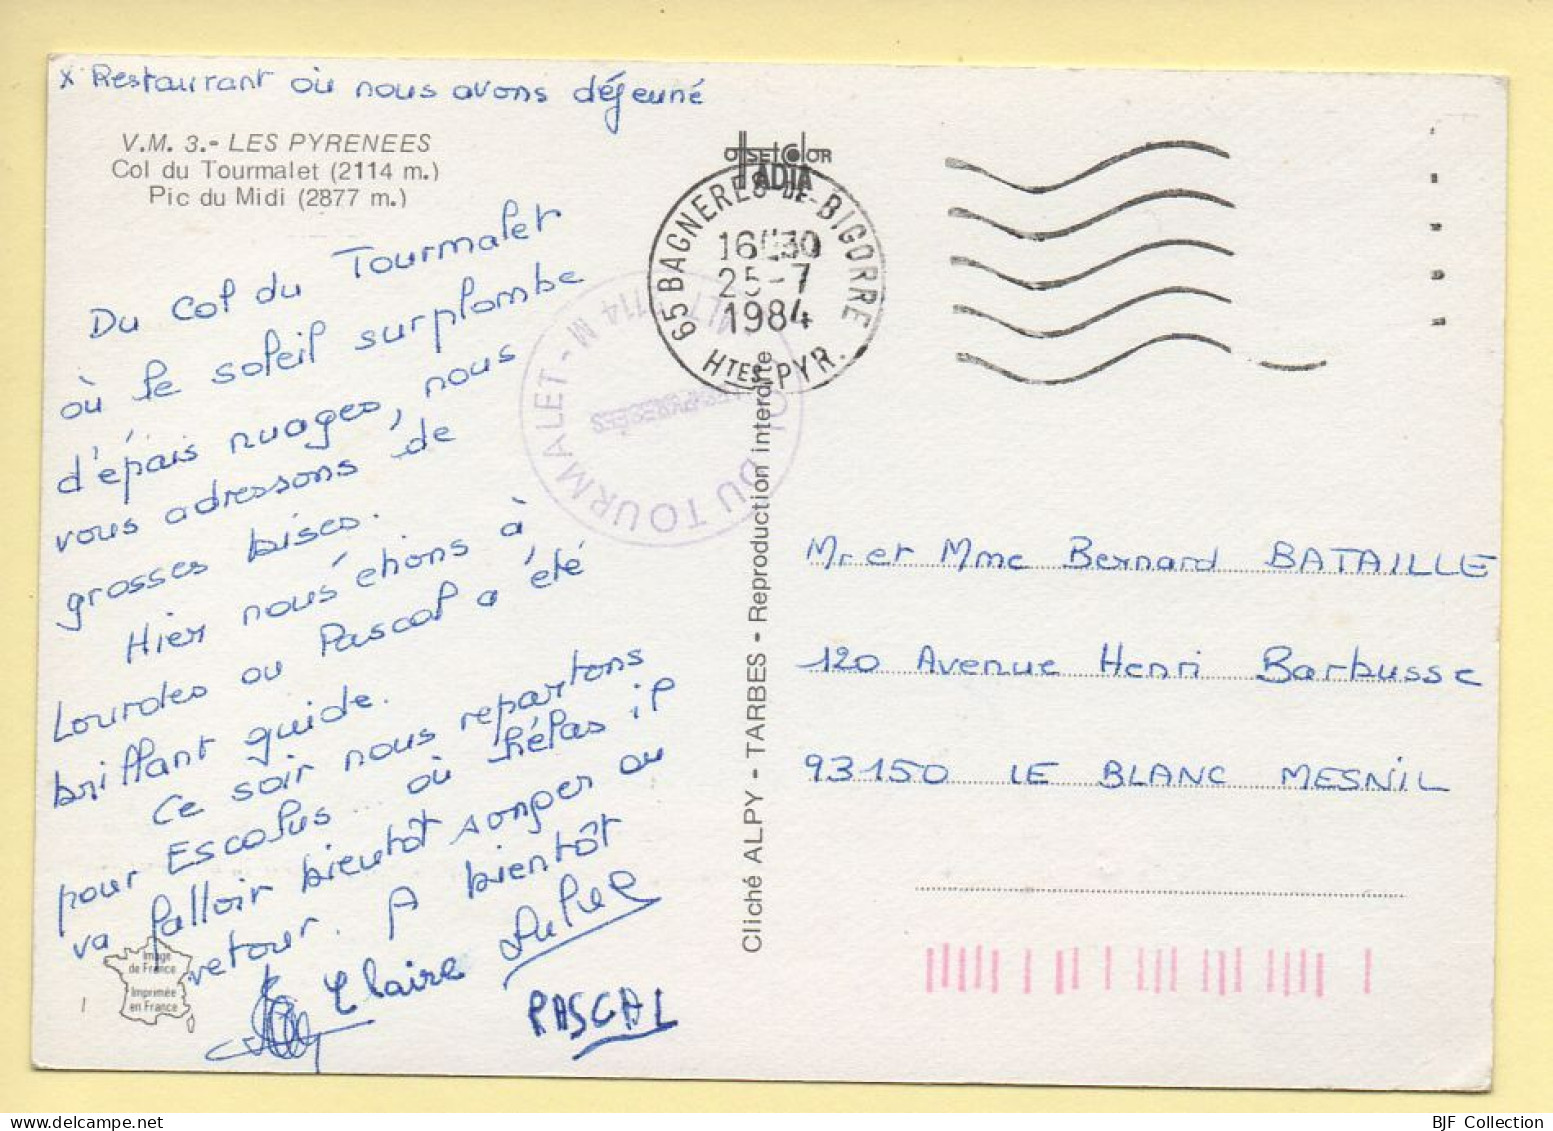 x Restaurrant où nous avons déjeuné
V.M. 3.- LES PYRENEES
Col du Tourmalet (2114 m.)
Pic du Midi (2877 m.)
Du Col du Tourmalet
où le soleil surplombe
d'épais nuages, nous
vous adressons de
grosses bises.
Hier nous étions à
Lourdes où Pascal a été
brillant guide.
Ce soir nous repartons
pour Escalus... où hélas il
va falloir bientôt songer au
retour. A bientôt
Claire
PASCAL
Image
de France
Imprimée
en France
OFFSETCOLOR
IADIA
65 BAGNERES-DE-BIGORRE
16H30
25-7
1984
HTES PYR.
COL DU TOURMALET - ALT. 2114 M
LES PYRENEES
Cliché ALPY - TARBES - Reproduction interdite
Mr et Mme Bernard BATAILLE
120 Avenue Henri Barbusse
93150 LE BLANC MESNIL
BJF Collection